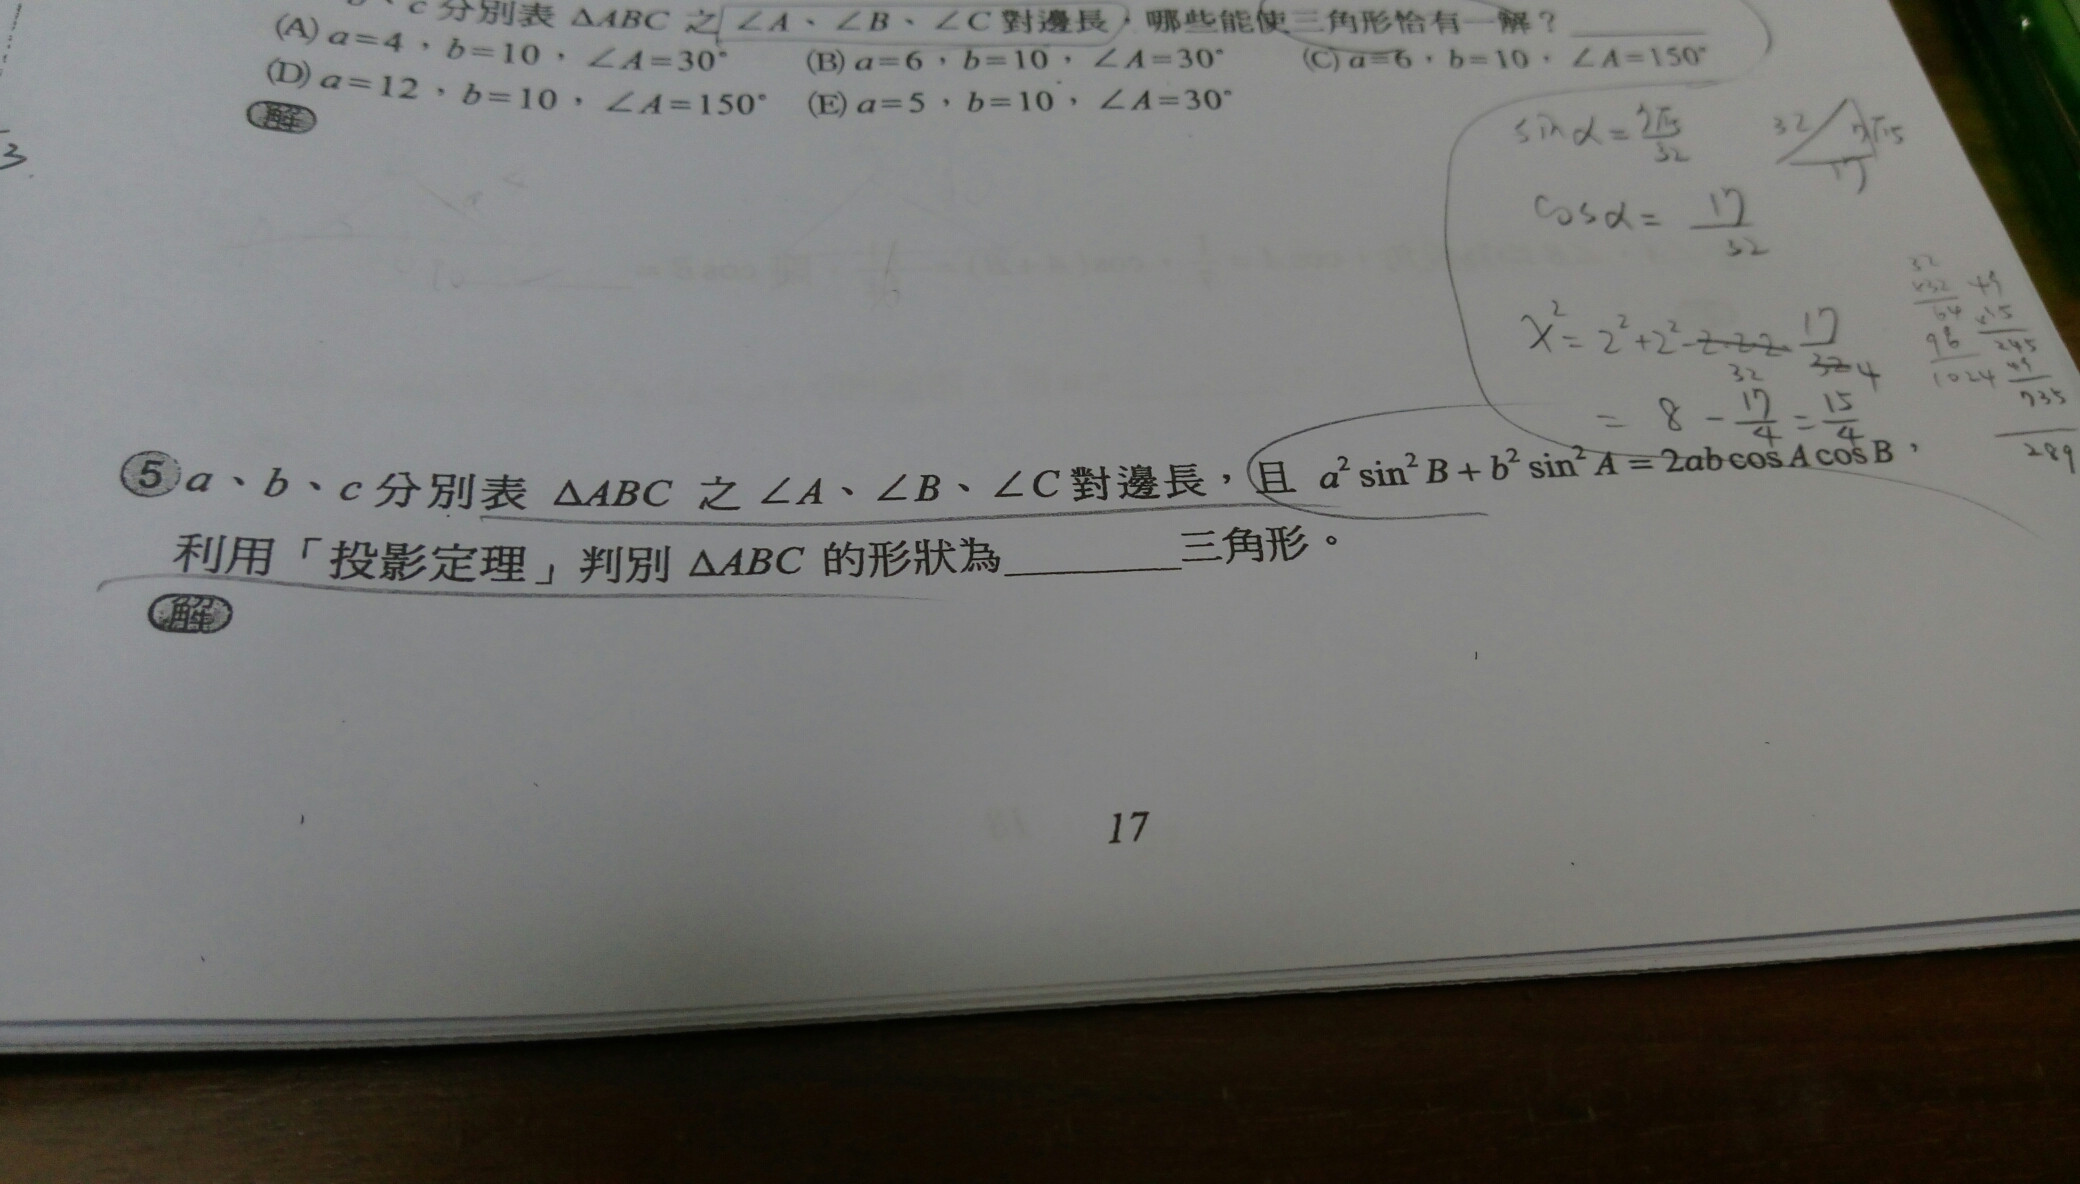 c 分別表 △ABC 之 ∠A、∠B、∠C 對邊長，哪些能使三角形恰有一解？
(A) a=4，b=10，∠A=30° (B) a=6，b=10，∠A=30° (C) a=6，b=10，∠A=150°
(D) a=12，b=10，∠A=150° (E) a=5，b=10，∠A=30°
解
3
sinα = 7√15/32
32 7√15 17
cosα = 17/32
x² = 2² + 2² - 2·2·2· 17/32 4
32
= 8 - 17/4 = 15/4
32
×32
64
96
1024
49
×15
245
49
735
289
⑤ a、b、c 分別表 △ABC 之 ∠A、∠B、∠C 對邊長，且 a² sin² B + b² sin² A = 2ab cos A cos B，
利用「投影定理」判別 △ABC 的形狀為________三角形。
解
17